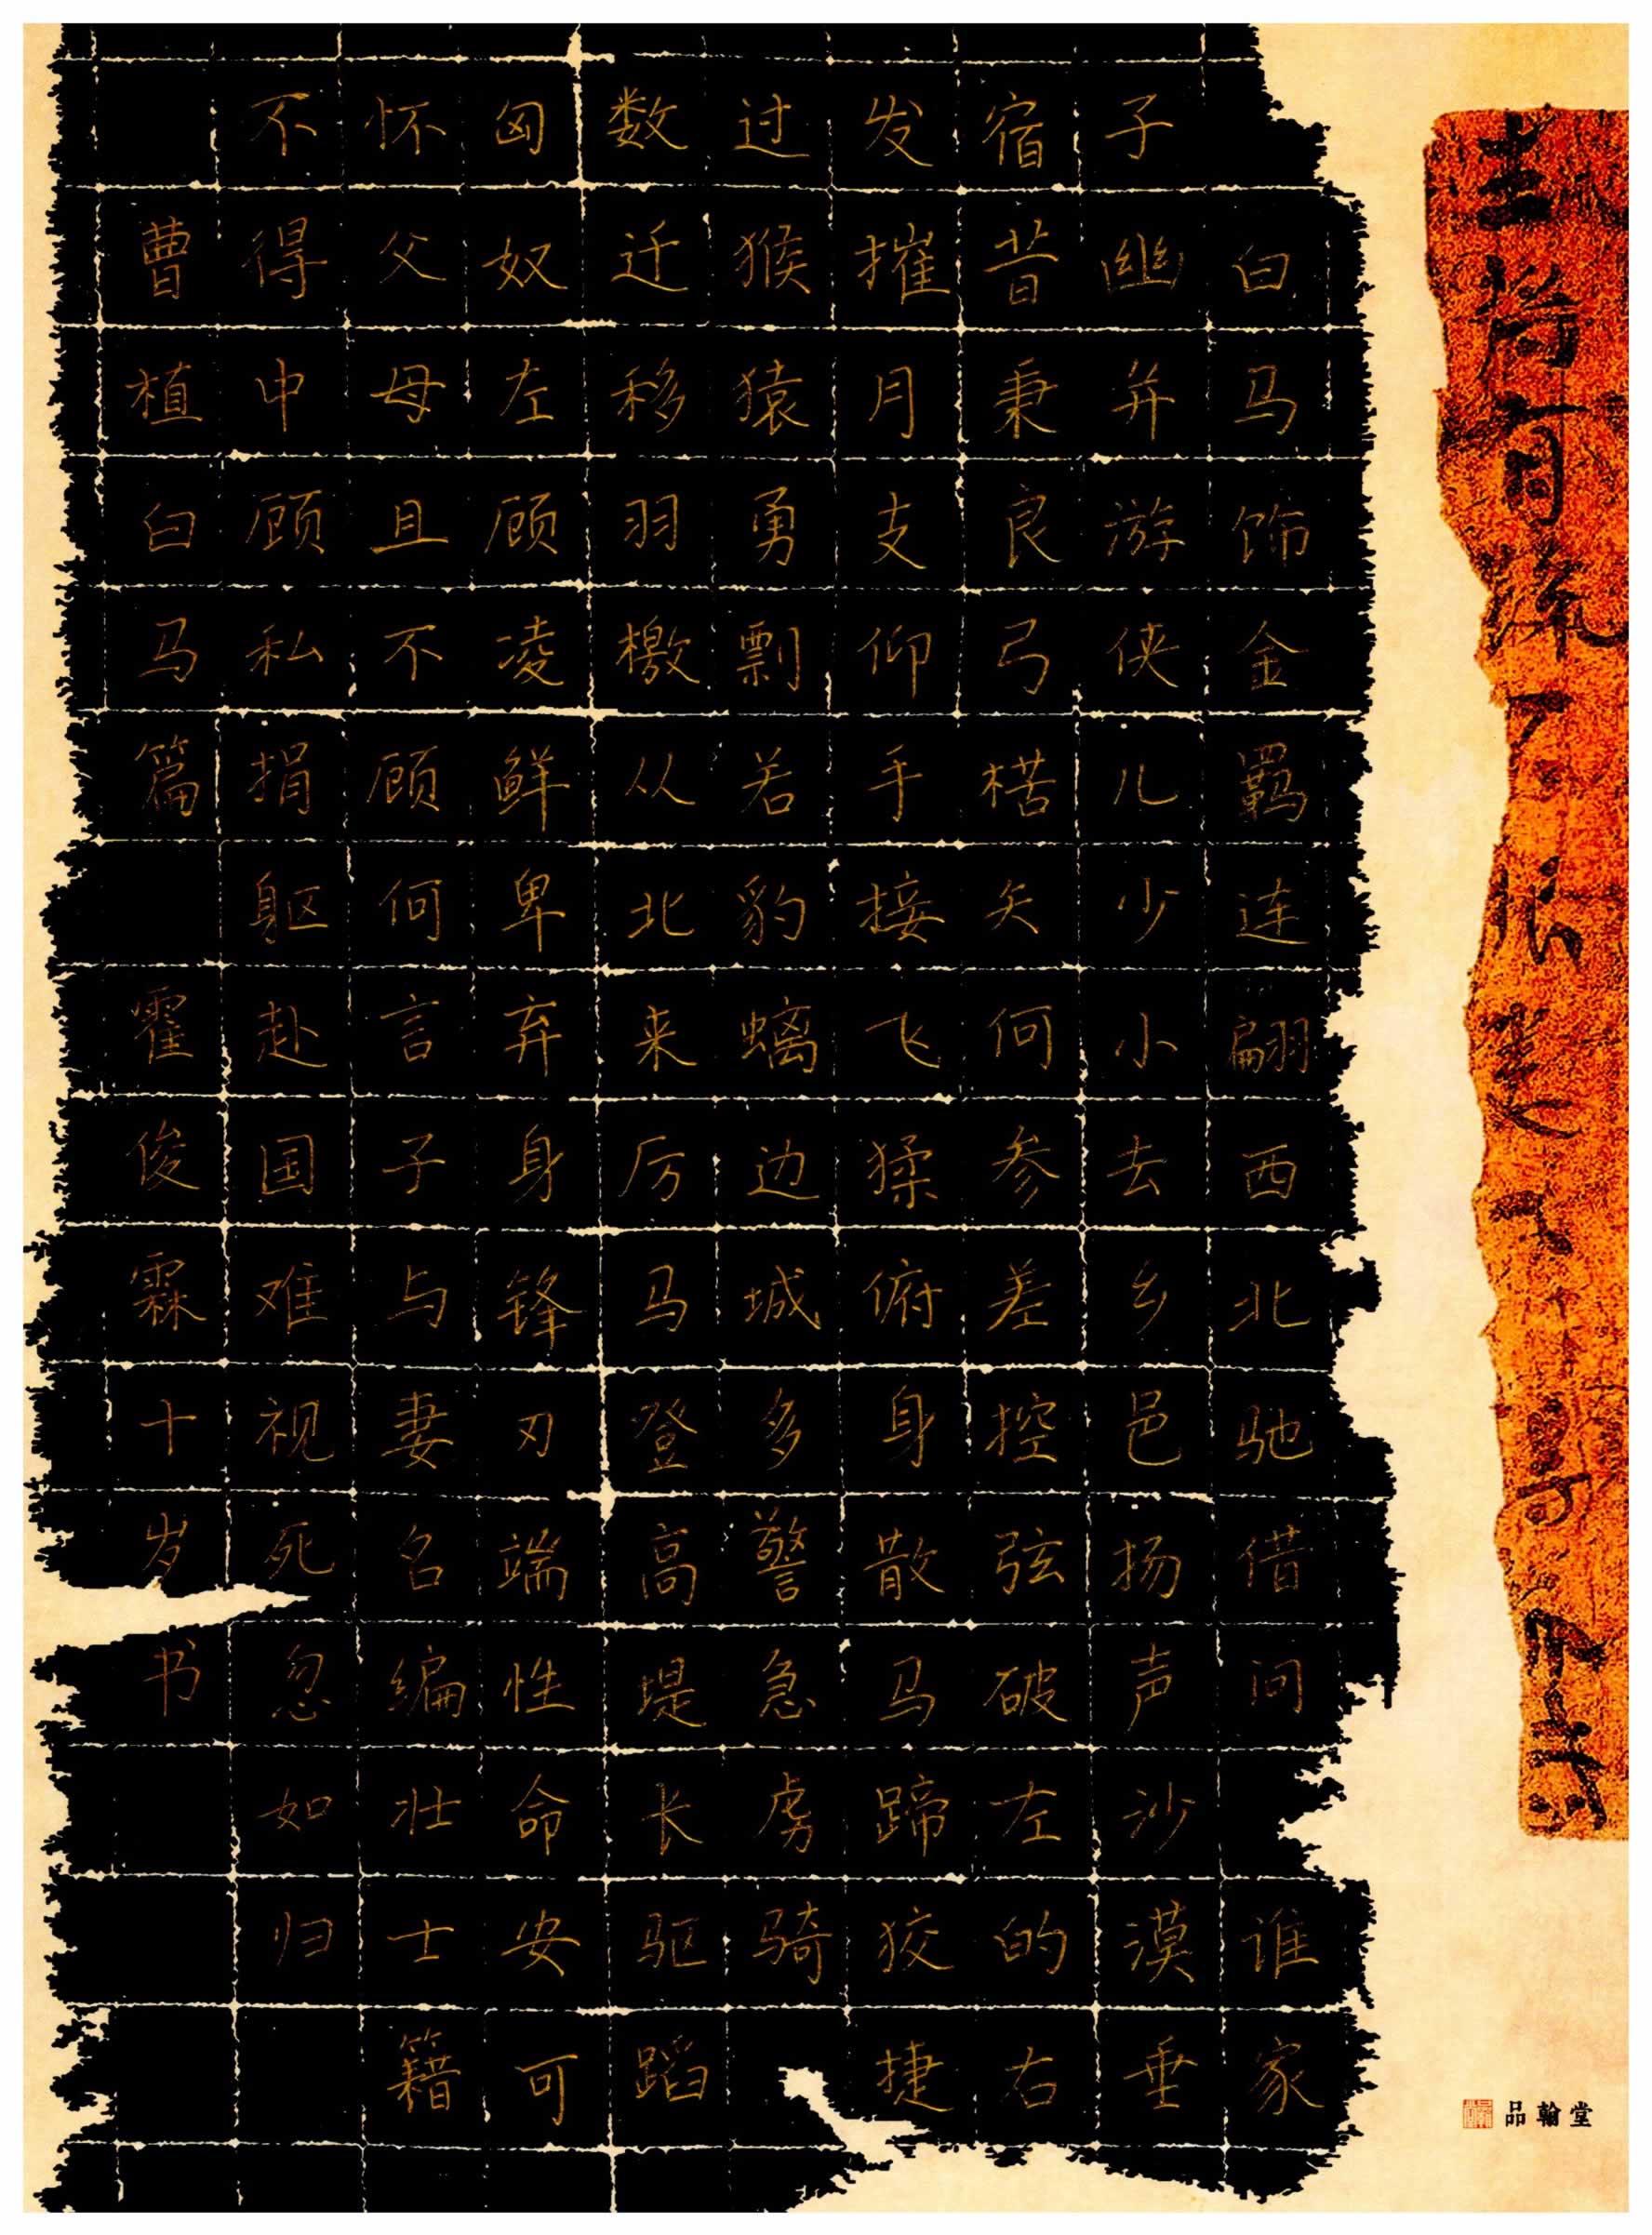 白马饰金羁连翩西北驰借问谁家
子幽并游侠儿少小去乡邑扬声沙漠垂
宿昔秉良弓楛矢何参差控弦破左的右
发摧月支仰手接飞猱俯身散马蹄狡捷
过猴猿勇剽若豹螭边城多警急虏骑
数迁移羽檄从北来厉马登高堤长驱蹈
匈奴左顾凌鲜卑弃身锋刃端性命安可
怀父母且不顾何言子与妻名编壮士籍
不得中顾私捐躯赴国难视死忽如归
曹植白马篇 霍俊霖十岁书
品翰堂